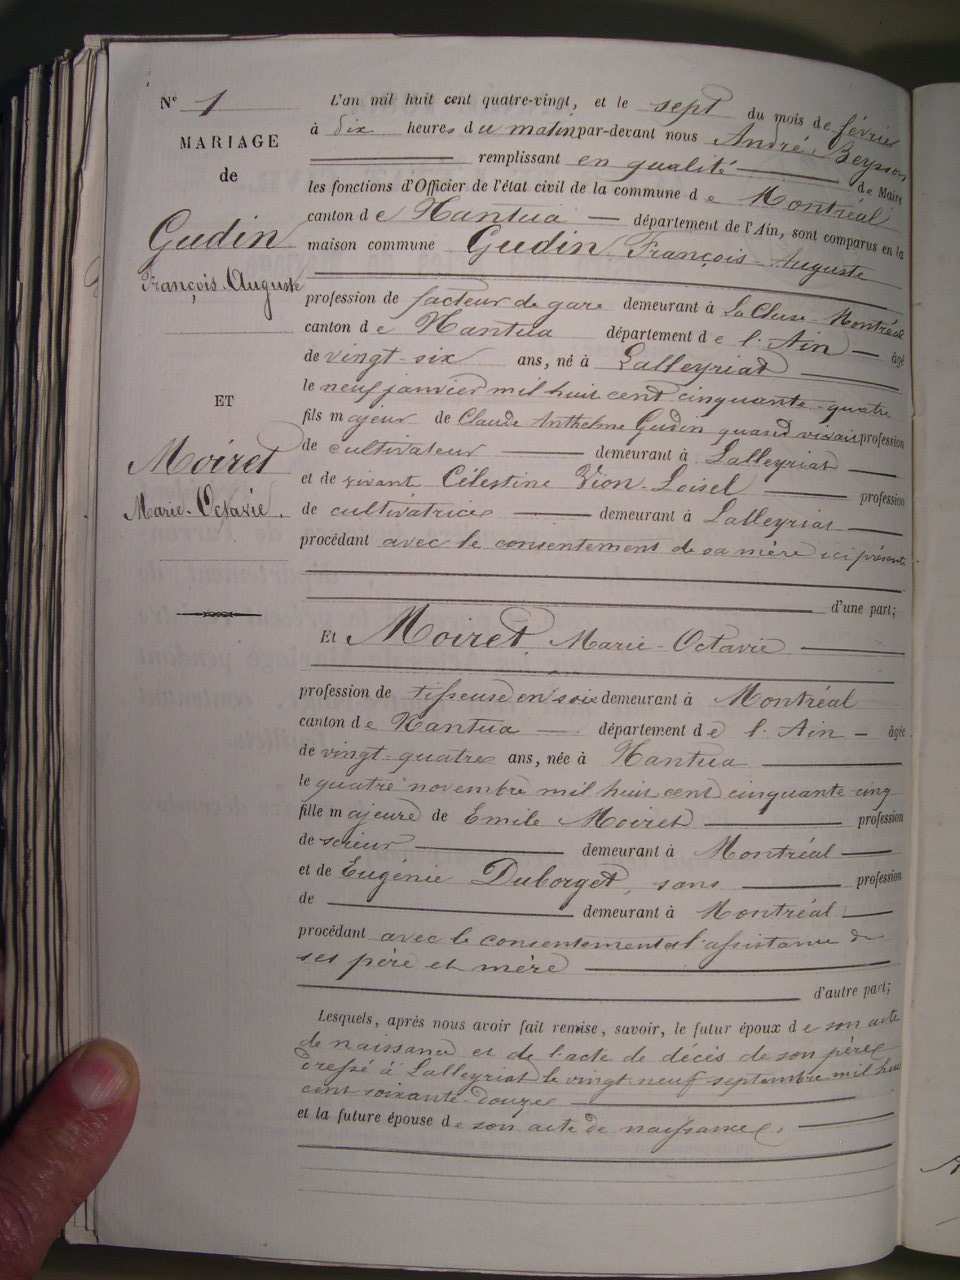 N° 1
MARIAGE
de
Gudin
François-Auguste
ET
Moiret
Marie-Octavie.
L'an mil huit cent quatre-vingt, et le sept du mois de février
à dix heures du matin par-devant nous André Beysson
remplissant en qualité de Maire
les fonctions d'Officier de l'état civil de la commune de Montréal
canton de Nantua — département de l'Ain, sont comparus en la
maison commune Gudin, François-Auguste
profession de facteur de gare demeurant à La Cluse-Montréal
canton de Nantua département de l'Ain — âgé
de vingt-six ans, né à Lalleyriat
le neuf janvier mil huit cent cinquante-quatre
fils majeur de Claude Anthelme Gudin quand vivait profession
de cultivateur — demeurant à Lalleyriat —
et de vivant Célestine Vion-Loisel — profession
de cultivatrice — demeurant à Lalleyriat —
procédant avec le consentement de sa mère ici présente
d'une part;
Et Moiret, Marie-Octavie —
profession de tisseuse en soie demeurant à Montréal
canton de Nantua — département de l'Ain — âgée
de vingt-quatre ans, née à Nantua —
le quatre novembre mil huit cent cinquante-cinq
fille majeure de Emile Moiret — profession
de scieur — demeurant à Montréal —
et de Eugénie Duborget, sans — profession
de — demeurant à Montréal —
procédant avec le consentement et l'assistance de
ses père et mère —
d'autre part;
Lesquels, après nous avoir fait remise, savoir, le futur époux de son acte
de naissance et de l'acte de décès de son père
dressé à Lalleyriat le vingt-neuf septembre mil huit
cent soixante-douze —
et la future épouse de son acte de naissance. —